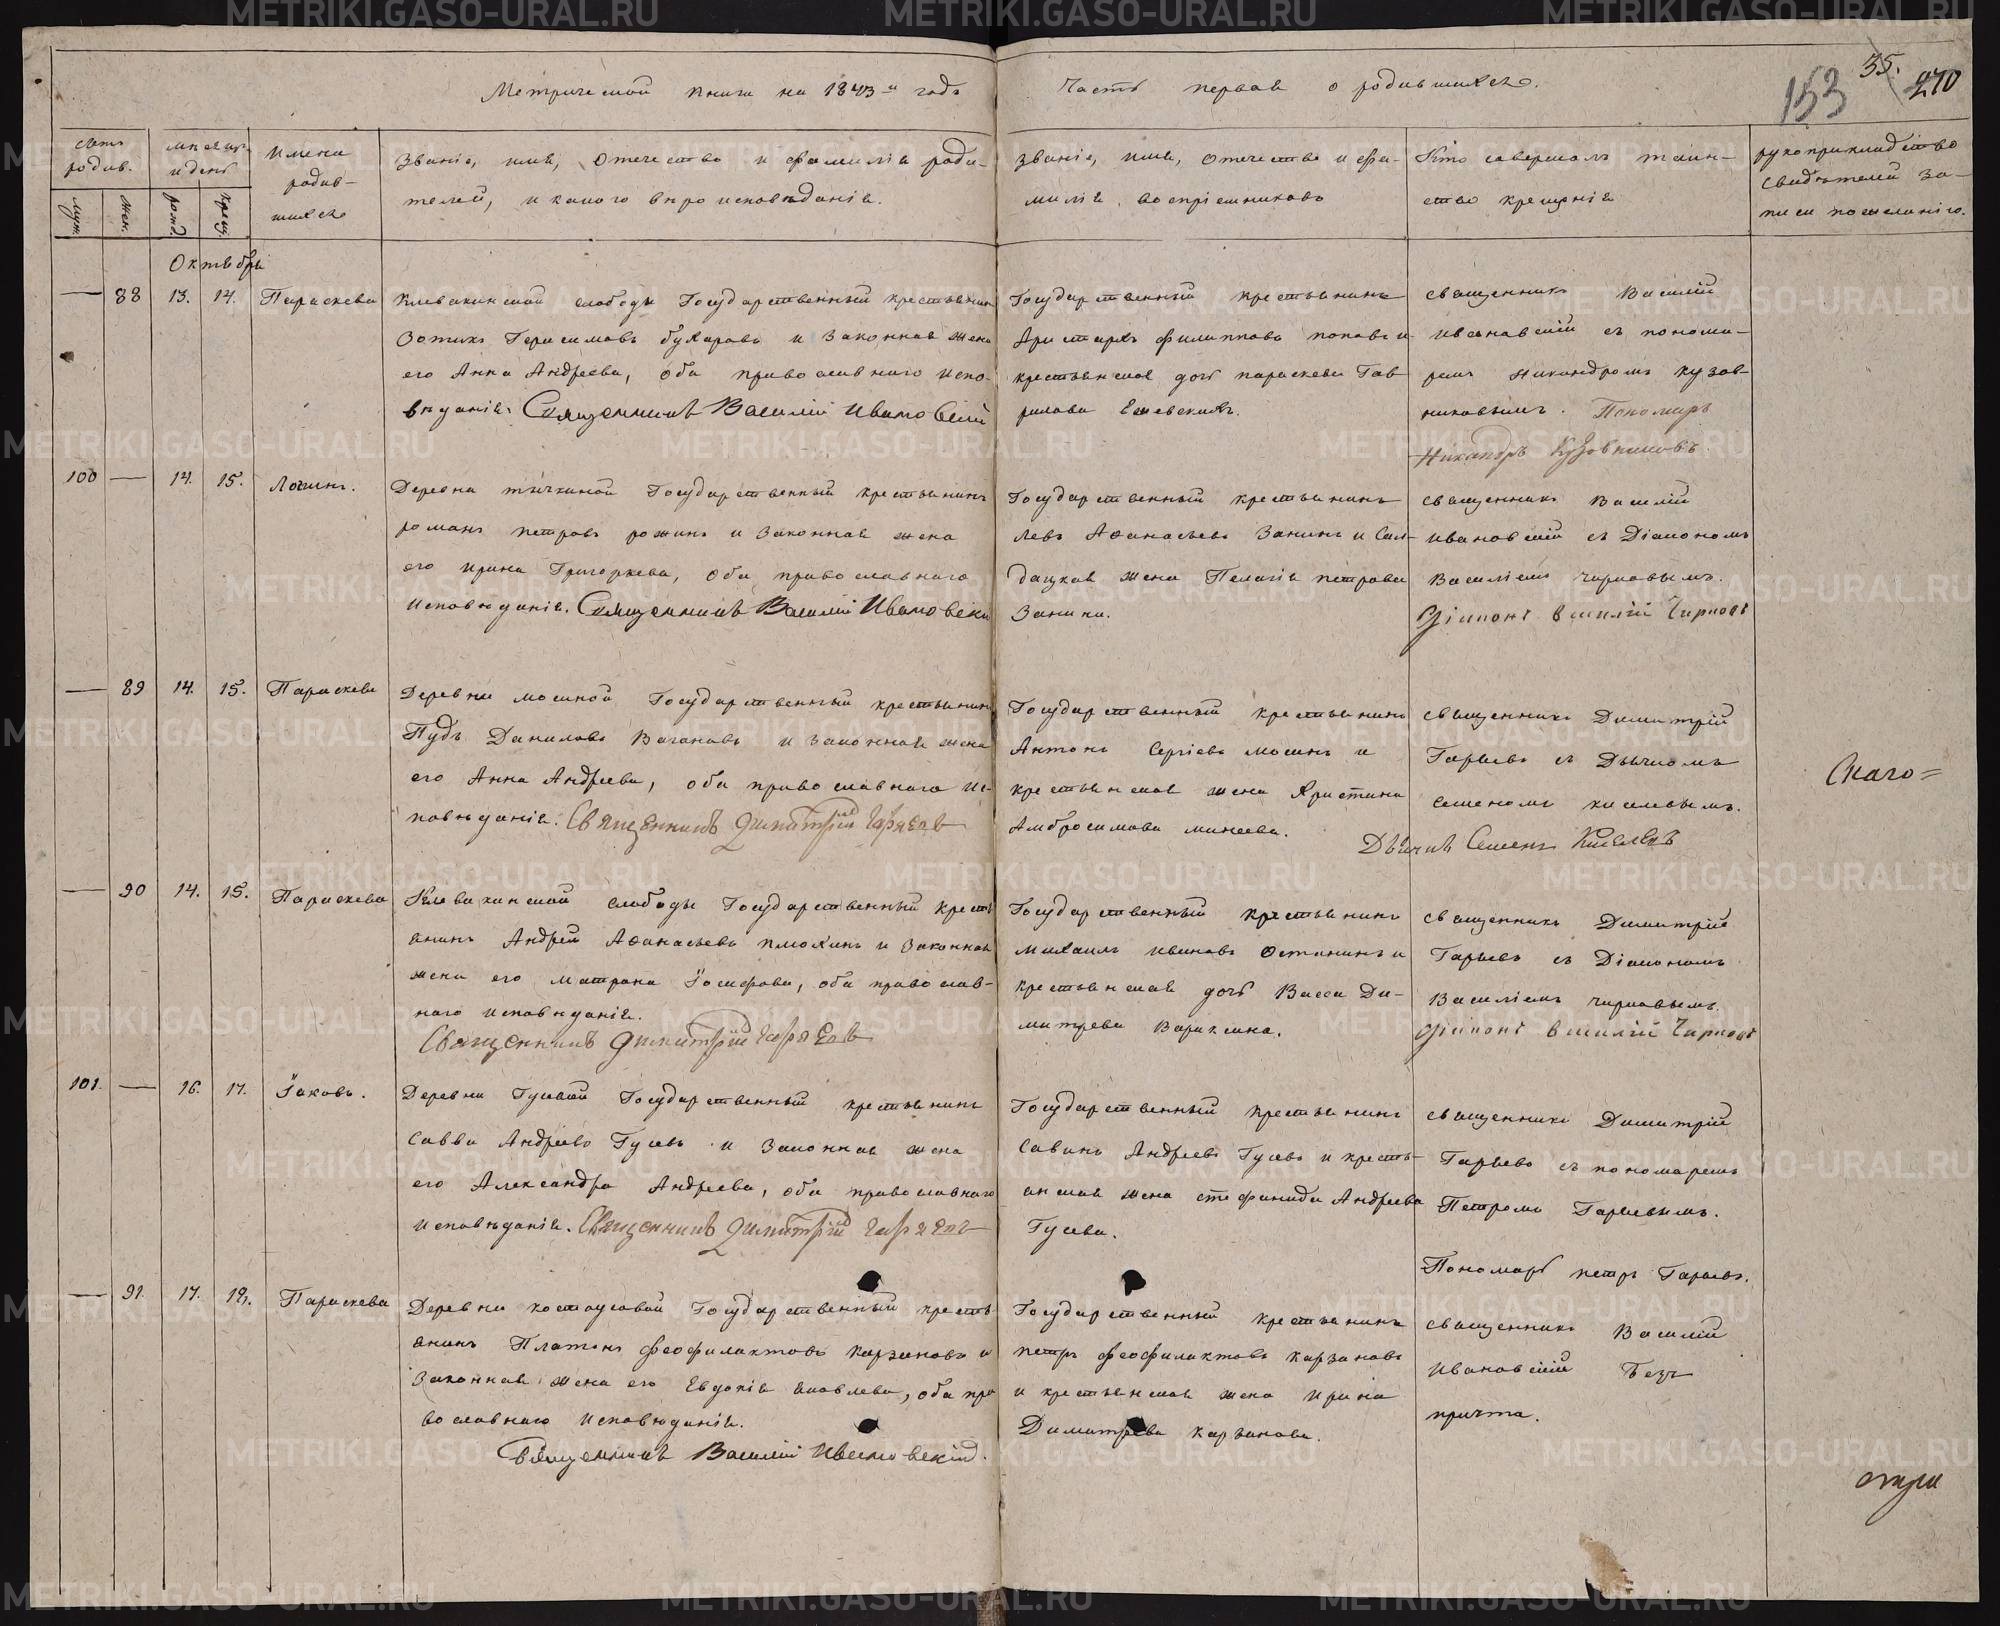 Метрической книги на 1843-й годъ
Часть первая о родившихся.
153
35.
270
счетъ родив.
муж.
жен.
месяцъ и день
рожд.
крещ.
Имена
родив-
шихся
Званіе, имя, отечество и фамилія роди-
телей, и какого вѣроисповѣданія.
Званіе, имя, отечество и фа-
милія воспріемниковъ
Кто совершалъ таин-
ство крещенія
рукоприкладство
свидѣтелей за-
писи по желанію.
Октябрь
— 88 13. 14. Параскева
Клевакинской слободы Государственный крестьянинъ
Зотикъ Герасимовъ Бухаровъ и законная жена
его Анна Андреева, оба православнаго испо-
вѣданія. Священникъ Василій Ивановскій
Государственный крестьянинъ
Аристархъ Филипповъ Поповъ и
крестьянская дочь Параскева Гав-
рилова
священникъ Василій
Ивановскій съ понома-
ремъ Никандромъ Кузов-
никовымъ. Пономарь
Никандръ Кузовниковъ.
100 — 14. 15. Логинъ.
Деревни Тычкиной Государственный крестьянинъ
Романъ Петровъ Рожинъ и законная жена
его Ирина Григорьева, оба православнаго
исповѣданія. Священникъ Василій Ивановскій
Государственный крестьянинъ
Левъ Афанасьевъ Занинъ и Сол-
дацкая жена Пелагія Петрова
Занина.
священникъ Василій
Ивановскій съ Діакономъ
Василіемъ Чирковымъ.
Діаконъ Василій Чирковъ
— 89 14. 15. Параскева
Деревни Мосиной Государственный крестьянинъ
Пудъ Даниловъ Вагановъ и законная жена
его Анна Андреева, оба православнаго ис-
повѣданія. Священникъ Димитрій Гаряевъ
Государственный крестьянинъ
Антонъ Сергіевъ Мосинъ и
крестьянская жена Христина
Амбросимова Минеева.
священникъ Димитрій
Гаряевъ съ Дьячкомъ
Семеномъ Киселевымъ.
Дьячикъ Семенъ Киселевъ
Скаго=
— 90 14. 15. Параскева
Клевакинской слободы Государственный кресть
янинъ Андрей Афанасьевъ Плюхинъ и законная
жена его Матрона Іосифова, оба православ-
наго исповѣданія.
Священникъ Димитрій Гаряевъ
Государственный крестьянинъ
Михаилъ Ивановъ Останинъ и
крестьянская дочь Васса Ди-
митрева Вараксина.
священникъ Димитрій
Гаряевъ съ Діакономъ
Василіемъ Чирковымъ.
Діаконъ Василій Чирковъ
101. — 16. 17. Іаковъ.
Деревни Гусевой Государственный крестьянинъ
Савва Андреевъ Гусевъ и законная жена
его Александра Андреева, оба православнаго
исповѣданія. Священникъ Димитрій Гаряевъ
Государственный крестьянинъ
Савинъ Андреевъ Гусевъ и кресть-
янская жена Стефанида Андреева
Гусева.
священникъ Димитрій
Гаряевъ съ пономаремъ
Петромъ Гаряевымъ.
Пономарь Петръ Гаряевъ.
— 91. 17. 18. Параскева
Деревни Костоусовой Государственный кресть
янинъ Платонъ Феофилактовъ Карзановъ и
законная жена его Евдокія Яковлева, оба пра
вославнаго исповѣданія.
Священникъ Василій Ивановскій.
Государственный крестьянинъ
Петръ Феофилактовъ Карзановъ
и крестьянская жена Ирина
Димитрева Карзанова.
священникъ Василій
Ивановскій безъ
причта.
METRIKI.GASO-URAL.RU